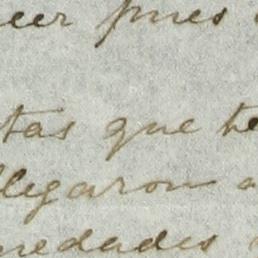 eer pues
tas que te
llegaron a
nedades